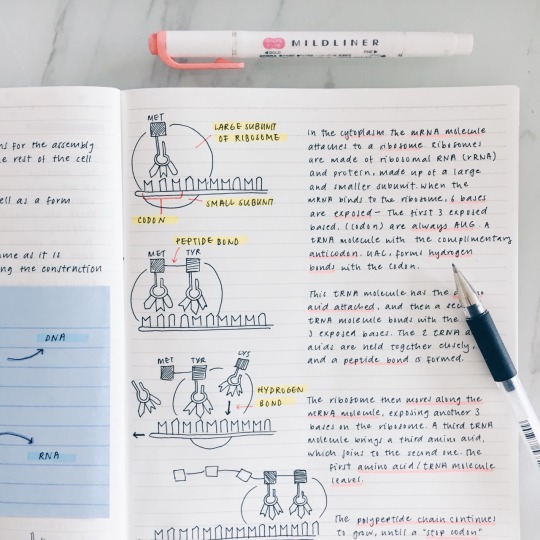 MILDLINER
BOLD
FINE
ns for the assembly
e rest of the cell
ell as a form
ome as it is
ng the construction
DNA
RNA
MET
LARGE SUBUNIT
OF RIBOSOME
SMALL SUBUNIT
CODON
PEPTIDE BOND
MET TYR
MET TYR LYS
HYDROGEN
BOND
In the cytoplasm the mRNA molecule
attaches to a ribosome. Ribosomes
are made of ribosomal RNA (rRNA)
and protein, made up of a large
and smaller subunit. When the
mRNA binds to the ribosome, 6 bases
are exposed - The first 3 exposed
based. (codon) are always AUG. A
tRNA molecule with the complimentary
anticodon. UAC, forms hydrogen
bonds with the codon.
This tRNA molecule has the
acid attached, and then a sec
tRNA molecule bonds with the
3 exposed bases. The 2 tRNA a
acids are held together closely,
and a peptide bond is formed.
The ribosome then moves along the
mRNA molecule, exposing another 3
bases on the ribosome. A third tRNA
molecule brings a third amino acid,
which joins to the second one. The
first amino acid/tRNA molecule
leaves.
The polypeptide chain continues
to grow, until a "stop codon"